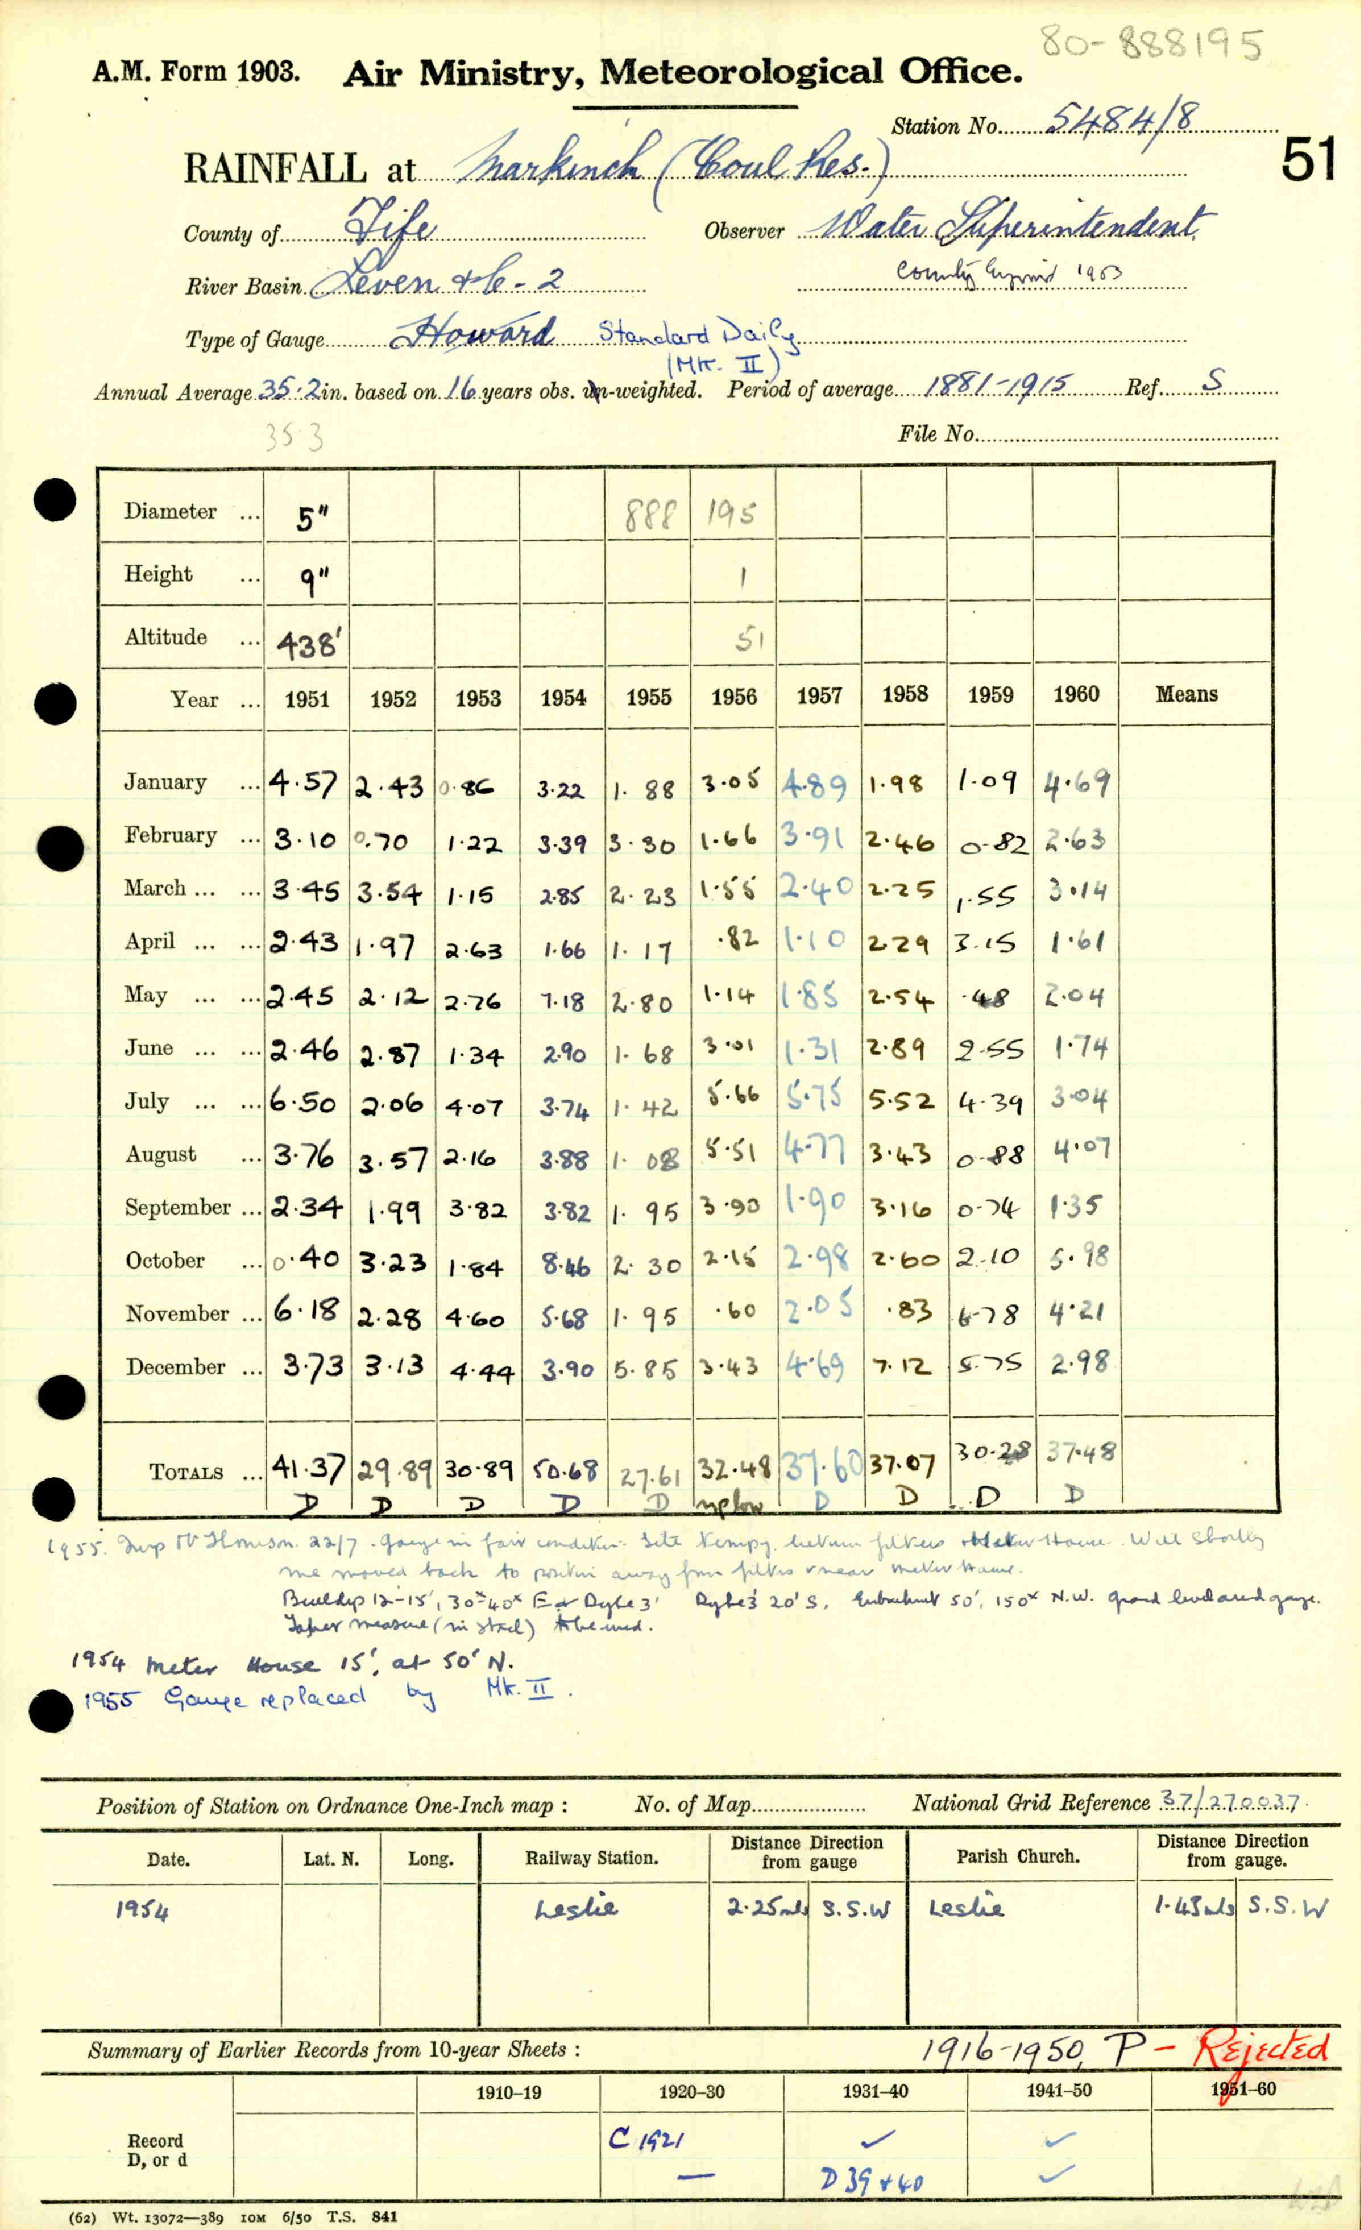 80-888195
A.M. Form 1903. Air Ministry, Meteorological Office.
Station No. 5484/8
51
RAINFALL at Markinch (Coul Res.)
County of Fife Observer Water Superintendent.
River Basin Leven &c - 2 County Engineer 1953
Type of Gauge Howard Standard Daily
(Mk. II)
Annual Average 35.2 in. based on 16 years obs. un-weighted. Period of average 1881-1915 Ref. S
35.3 File No.
Diameter ... 5" 888 195
Height ... 9" 1
Altitude ... 438' 51
Year ... 1951 1952 1953 1954 1955 1956 1957 1958 1959 1960 Means
January ... 4.57 2.43 0.86 3.22 1.88 3.05 4.89 1.98 1.09 4.69
February ... 3.10 0.70 1.22 3.39 3.30 1.66 3.91 2.46 0.82 2.63
March ... ... 3.45 3.54 1.15 2.85 2.23 1.55 2.40 2.25 1.55 3.14
April ... ... 2.43 1.97 2.63 1.66 1.17 .82 1.10 2.29 3.15 1.61
May ... ... 2.45 2.12 2.76 7.18 2.80 1.14 1.85 2.54 .48 2.04
June ... ... 2.46 2.87 1.34 2.90 1.68 3.01 1.31 2.89 2.55 1.74
July ... ... 6.50 2.06 4.07 3.74 1.42 5.66 5.75 5.52 4.39 3.04
August ... 3.76 3.57 2.16 3.88 1.08 5.51 4.77 3.43 0.88 4.07
September ... 2.34 1.99 3.82 3.82 1.95 3.90 1.90 3.16 0.74 1.35
October ... 0.40 3.23 1.84 8.46 2.30 2.15 2.98 2.60 2.10 5.98
November ... 6.18 2.28 4.60 5.68 1.95 .60 2.05 .83 6.78 4.21
December ... 3.73 3.13 4.44 3.90 5.85 3.43 4.69 7.12 5.75 2.98
TOTALS ... 41.37 29.89 30.89 50.68 27.61 32.48 37.60 37.07 30.28 37.48
D D D D D D D D D
1955. Insp 22/7. gauge in fair condition. Site between filters Meter House. Will shortly
moved back to position away from filters near meter house.
12-15', 30x-40x E 3' 20' S, 50', 150x N.W. gauge.
Taper measure (in stock) to be used.
1954 Meter House 15', at 50' N.
1955 Gauge replaced by Mk. II.
Position of Station on Ordnance One-Inch map : No. of Map National Grid Reference 37/270037
Date. Lat. N. Long. Railway Station. Distance Direction from gauge Parish Church. Distance Direction from gauge.
1954 Leslie 2.25 mls S.S.W Leslie 1.45 mls S.S.W
Summary of Earlier Records from 10-year Sheets : 1916-1950, P - Rejected
1910-19 1920-30 1931-40 1941-50 1951-60
Record C 1921 ✓ ✓
D, or d — D 39 + 40 ✓
(62) Wt. 13072—389 10M 6/50 T.S. 841